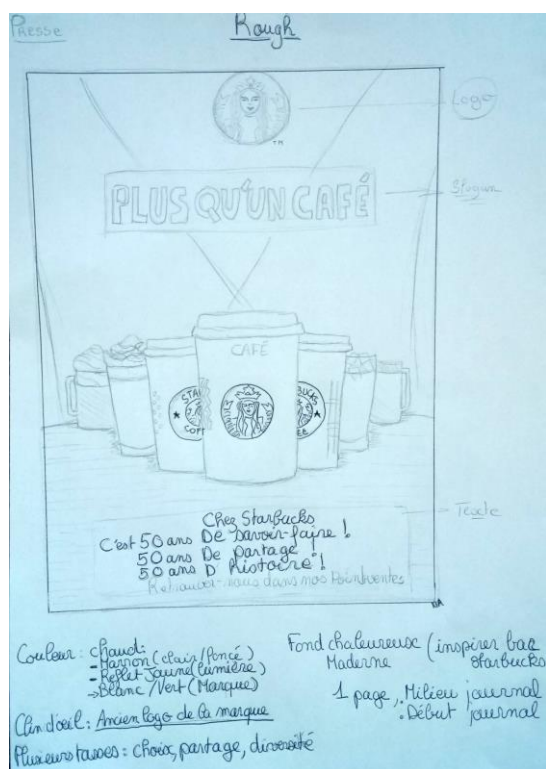 Presse
Rough
Logo
TM
PLUS QU'UN CAFÉ
Slogan
CAFÉ
STA
COFF
STARBUCKS
BUCKS
FEE
Texte
Chez Starbucks
C'est 50 ans De savoir-faire !
50 ans De partage !
50 ans D'histoire !
Retrouver-nous dans nos Points ventes
Couleur : chaud :
- Marron (clair/foncé)
- Reflet Jaune (lumière)
→ Blanc / Vert (Marque)
Clin d'oeil : Ancien logo de la marque
Plusieurs tasses : choix, partage, diversité
Fond chaleureux (inspirer bar
Moderne starbucks
1 page, . Milieu journal
. Début journal